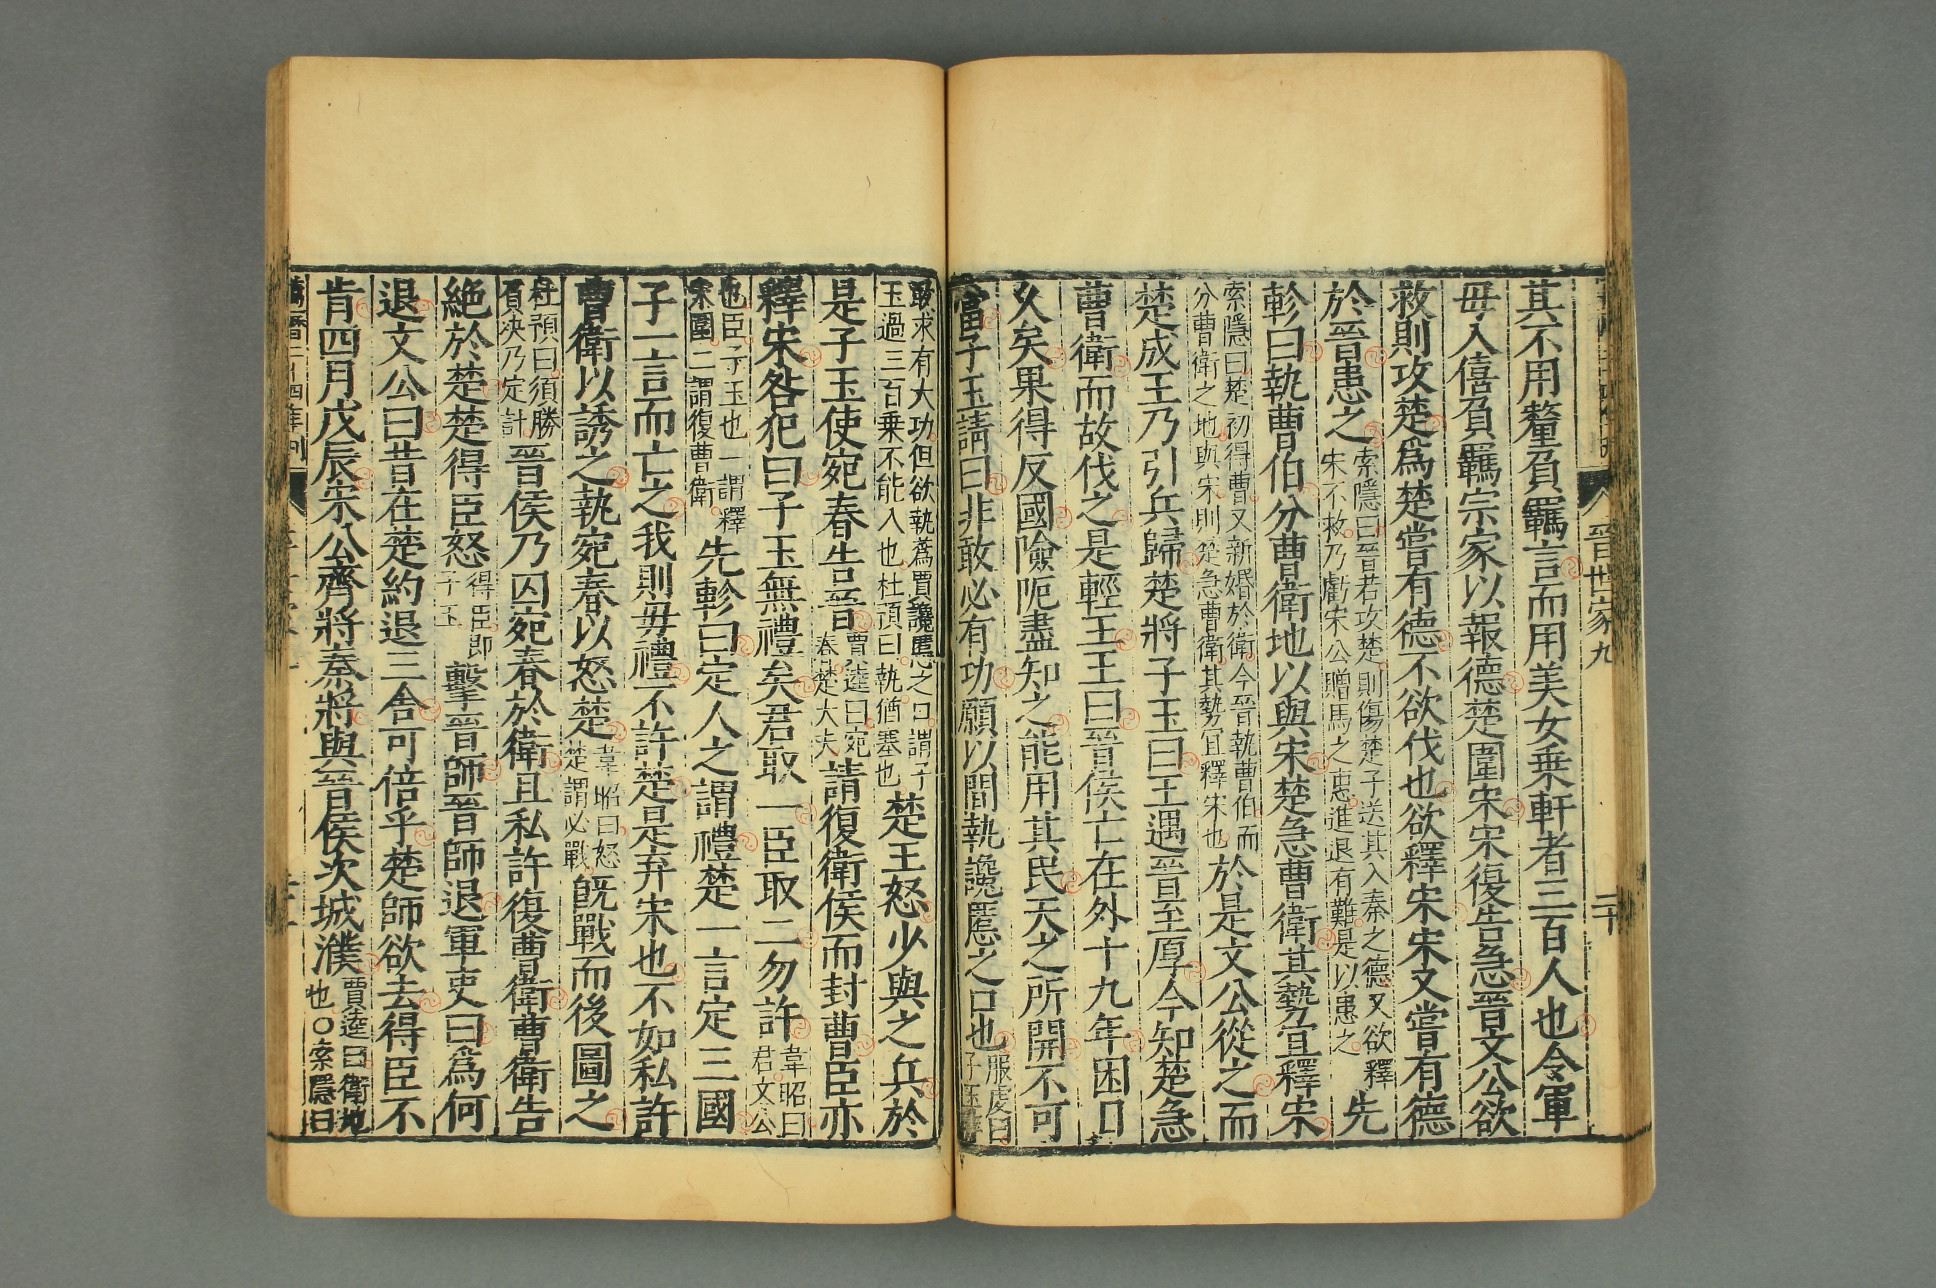 晋世家九
二十
其不用釐負羈言而用美女乗軒者三百人也令軍
毋入僖負羈宗家以報德楚圍宋宋復告急晉文公欲
救則攻楚爲楚嘗有德不欲伐也欲釋宋宋又嘗有德
於晉患之索隱曰晉若攻楚則傷楚子送其入秦之德又欲釋宋不救乃虧宋公贈馬之惠進退有難是以患之先
軫曰執曹伯分曹衛地以與宋楚急曹衛其勢宜釋宋
索隱曰楚初得曹又新婚於衛今晉執曹伯而分曹衛之地與宋則楚急曹衛其勢宜釋宋也於是文公從之而
楚成王乃引兵歸楚將子玉曰王遇晉至厚今知楚急
曹衛而故伐之是輕王王曰晉侯亡在外十九年困日
久矣果得反國險阨盡知之能用其民天之所開不可
當子玉請曰非敢必有功願以間執讒慝之口也服虔曰子玉非
敢求有大功但欲執蔿賈讒慝之口謂子玉過三百乗不能入也杜預曰執猶塞也楚王怒少與之兵於
是子玉使宛春告晉賈逵曰宛春楚大夫請復衛侯而封曹臣亦
釋宋咎犯曰子玉無禮矣君取一臣取二勿許韋昭曰君文公
也臣子玉也一謂釋宋圍二謂復曹衛先軫曰定人之謂禮楚一言定三國
子一言而亡之我則毋禮不許楚是弃宋也不如私許
曹衛以誘之執宛春以怒楚韋昭曰怒楚謂必戰旣戰而後圖之
杜預曰須勝負决乃定計晉侯乃囚宛春於衛且私許復曹衛曹衛告
絶於楚楚得臣怒得臣即子玉擊晉師晉師退軍吏曰爲何
退文公曰昔在楚約退三舎可倍乎楚師欲去得臣不
肯四月戊辰宋公齊將秦將與晉侯次城濮賈逵曰衛地也○索隱曰